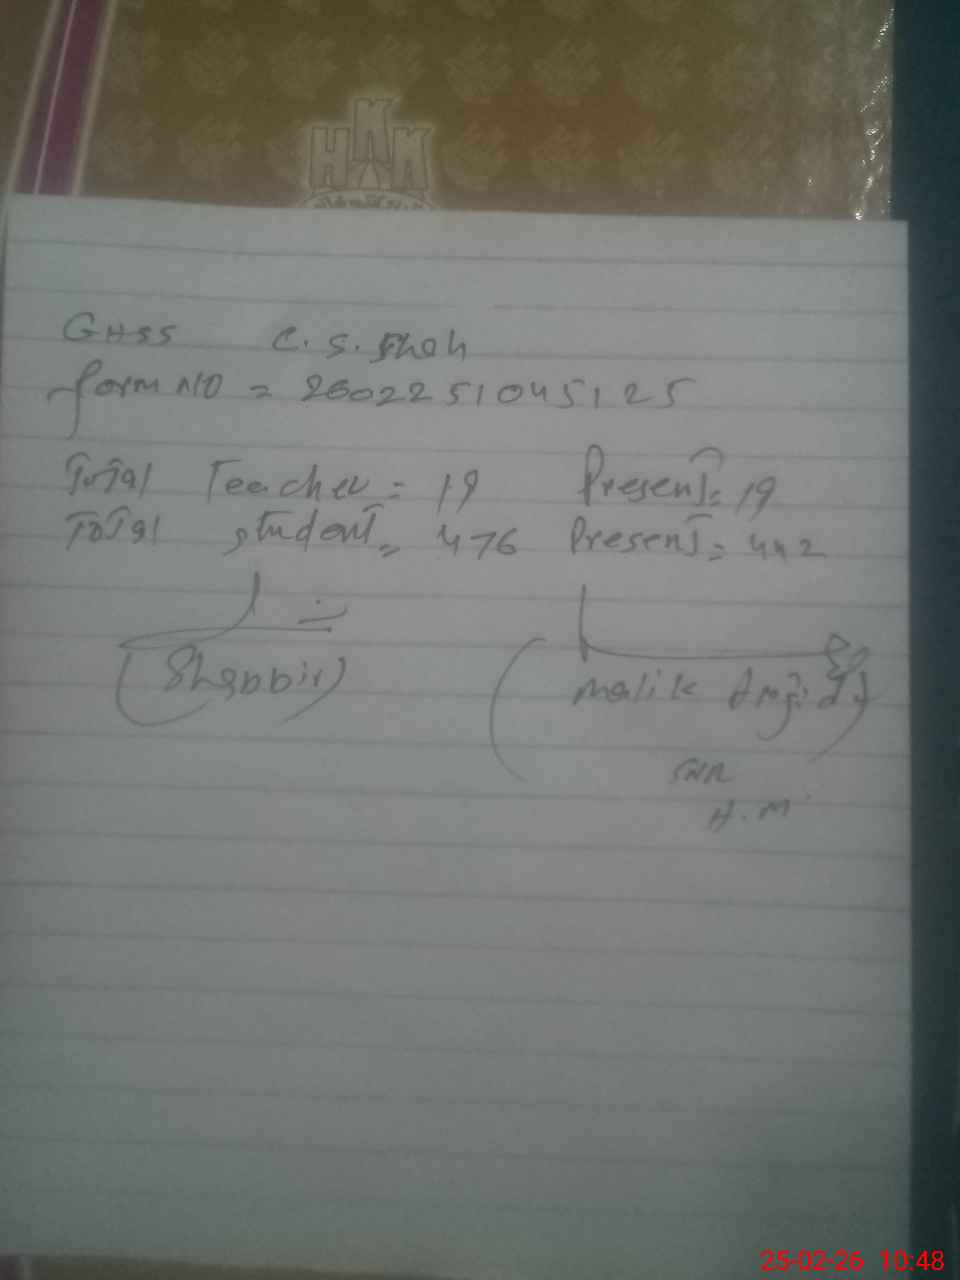 HKK
GHSS C. S. Shah
form NO = 2602251045125
Total Teacher = 19 Present = 19
Total student = 476 Present = 442
(Shabbir) (Malik Amjid)
H.M
25-02-26 10:48